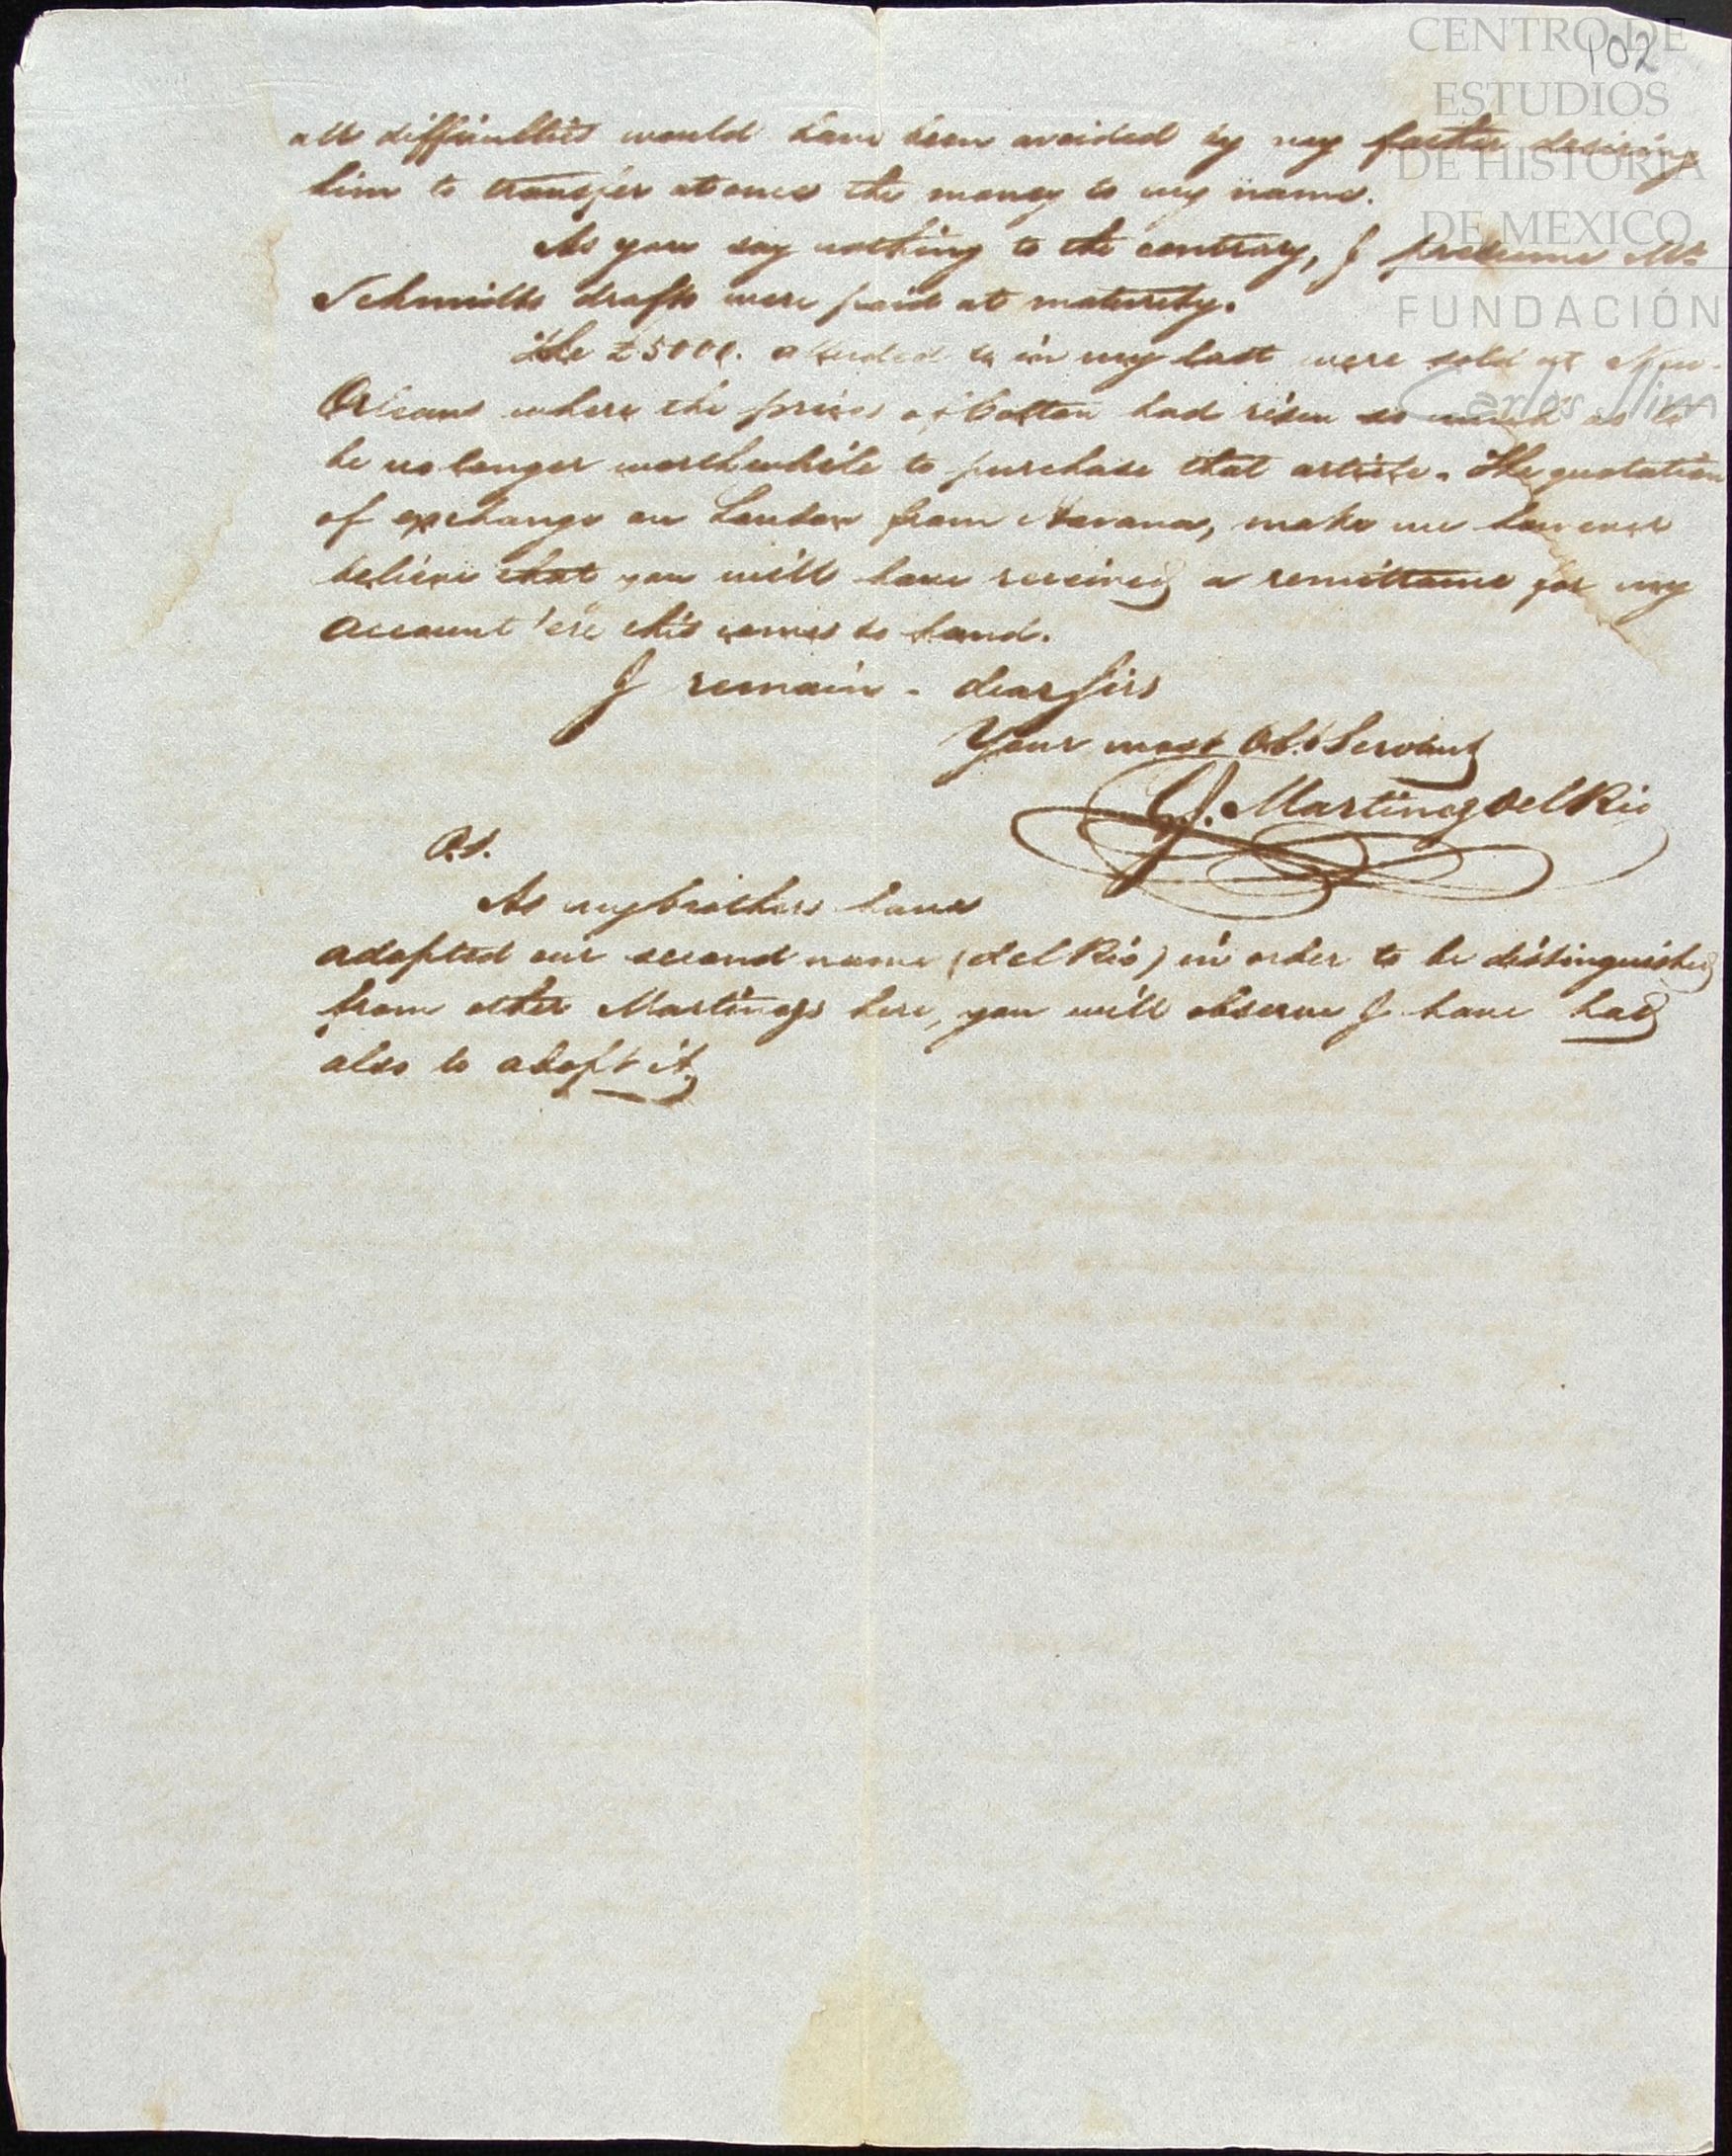 102
CENTRO DE
ESTUDIOS
DE HISTORIA
DE MEXICO
FUNDACIÓN
Carlos Slim
all difficulties would have been avoided by my father desiring
him to transfer at once the money to my name.
As you say nothing to the contrary, I presume Mr
Schmidts drafts were paid at maturity.
The £5000. alluded to in my last were sold at New-
Orleans where the prices of Cotton had risen so much as to
be no longer worth while to purchase that article. The quotation
of exchange on London from Havana, make me however
believe that you will have received a remittance for my
account 'ere this comes to hand.
I remain - dear Sirs
Your most Ob.t Servant
J. Martinez del Rio
P.S.
As my brothers have
adopted our second name (del Rio) in order to be distinguished
from other Martinezs here, you will observe I have had
also to adopt it.